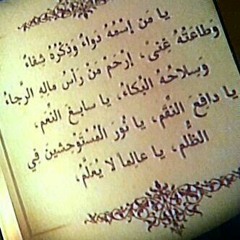 يا مَن إسْمُهُ دَواءٌ وذِكْرُهُ شِفاءٌ
وَطاعَتُهُ غِنىً، إرْحَمْ مَنْ رَأسُ مالِهِ الرَّجاءُ
وَسِلاحُهُ البُكاءُ، يا سابِغَ النِّعَمِ،
يا دافِعَ النِّقَمِ، يا نُورَ المُسْتَوْحِشينَ في
الظُّلَمِ، يا عالِماً لا يُعَلَّمُ،